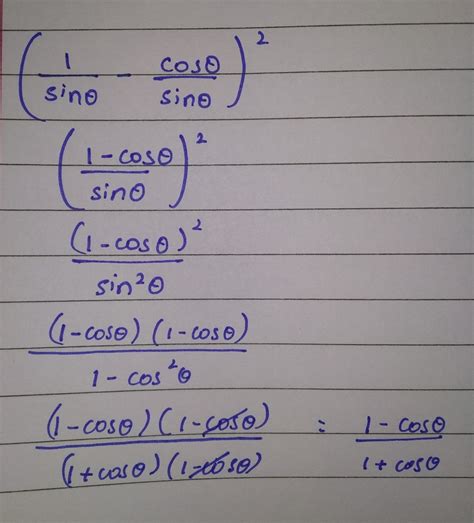 (1/sinθ - cosθ/sinθ)²
((1-cosθ)/sinθ)²
(1-cosθ)²/sin²θ
(1-cosθ)(1-cosθ)/1-cos²θ
(1-cosθ)(1-cosθ)/(1+cosθ)(1-cosθ) = 1-cosθ/1+cosθ